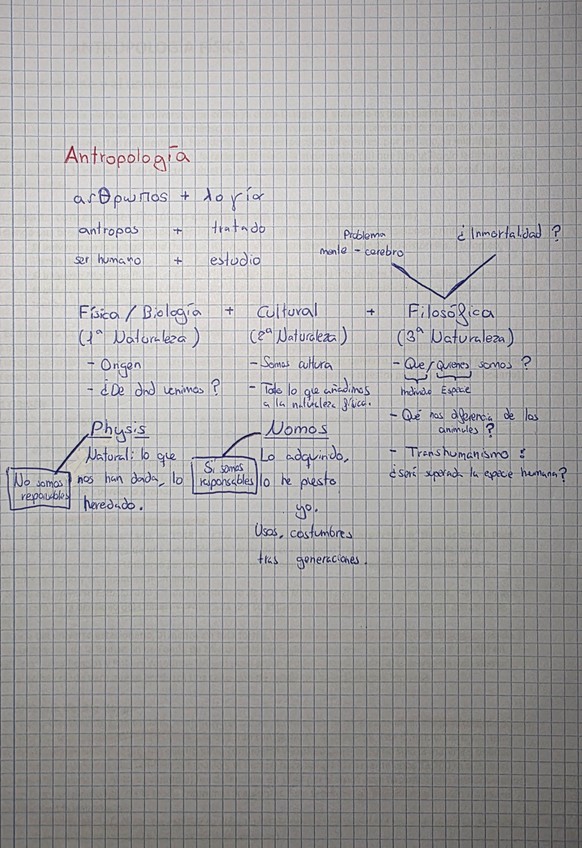 Antropología
ασθρωπος + λογία
antropos + tratado
ser humano + estudio
Problema
mente - cerebro
¿Inmortalidad?
Física / Biología + Cultural + Filosófica
(1ª Naturaleza) (2ª Naturaleza) (3ª Naturaleza)
- Origen
- ¿De dnd venimos?
Physis
Natural: lo que
nos han dado, lo
heredado.
No somos
responsables
- Somos cultura
- Todo lo que añadimos
a la naturaleza física.
Nomos
Lo adquirido,
lo he puesto
yo.
Usos, costumbres
tras generaciones.
Si somos
responsables
- Que/Quienes somos?
Individuo Especie
- Qué nos diferencia de los
animales?
- Transhumanismo:
¿Será superada la especie humana?